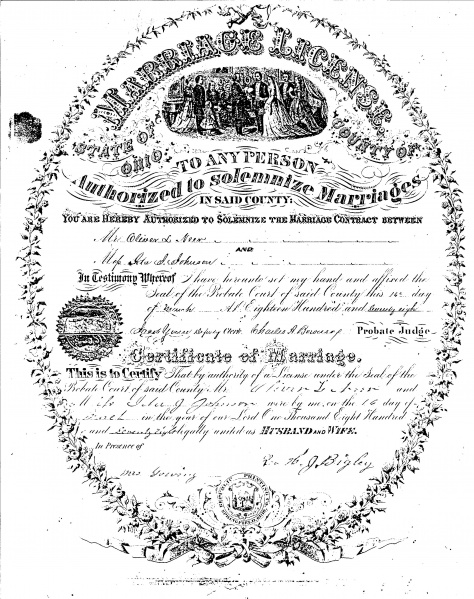 MARRIAGE LICENSE.
STATE OF OHIO COUNTY OF
TO ANY PERSON
Authorized to solemnize Marriages
IN SAID COUNTY:
YOU ARE HEREBY AUTHORIZED TO SOLEMNIZE THE MARRIAGE CONTRACT BETWEEN
Mr Oliver L Neer
AND
Miss Ida J. Johnson
In Testimony Whereof I have hereunto set my hand and affixed the
Seal of the Probate Court of said County this 16 day
of March A.D. Eighteen Hundred and Seventy eight
Deputy Clerk Charles A Probate Judge
Certificate of Marriage.
This is to Certify That by authority of a License under the Seal of the
Probate Court of said County Mr Oliver L Neer and
Miss Ida J Johnson were by me on the 16 day of
March in the year of our Lord One Thousand Eight Hundred
and Seventy Eight legally united as HUSBAND AND WIFE.
In Presence of
H. J. Bigley
Mrs